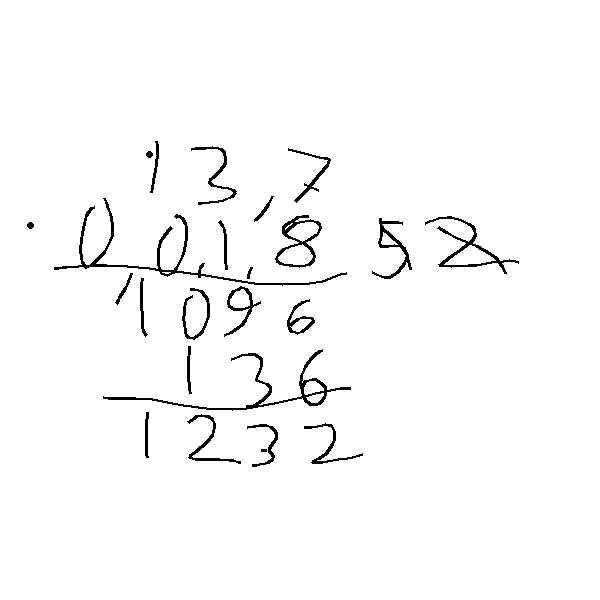 13,7
00,1,8 52
1096
136
1232